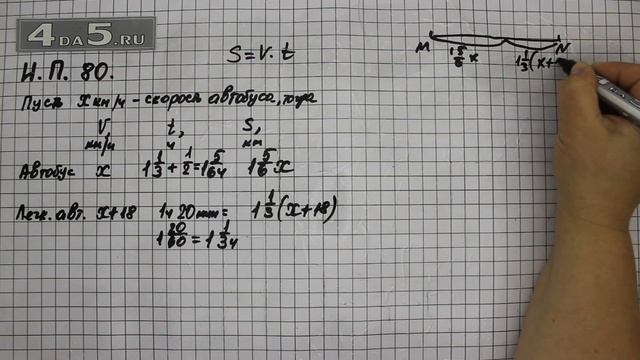 4DA5.RU
S=V·t
Н.П. 80.
M N
1 5/6 x 1 1/3 (x+
Пусть x км/ч - скорость автобуса, тогда
V, t, S,
км/ч ч км
Автобус x 1 1/3 + 1/2 = 1 5/6 ч 1 5/6 x
Легк. авт. x+18 1ч 20 мин = 1 1/3 (x+18)
1 20/60 = 1 1/3 ч